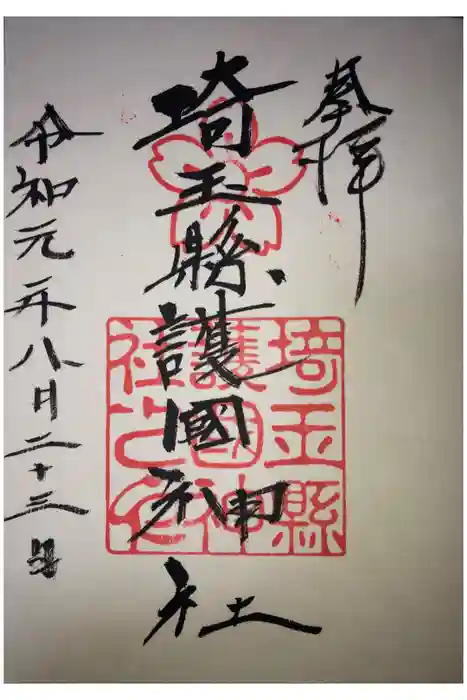 奉拝
埼玉縣護國神社
令和元年八月二十三日
埼玉縣
護國神
社之印